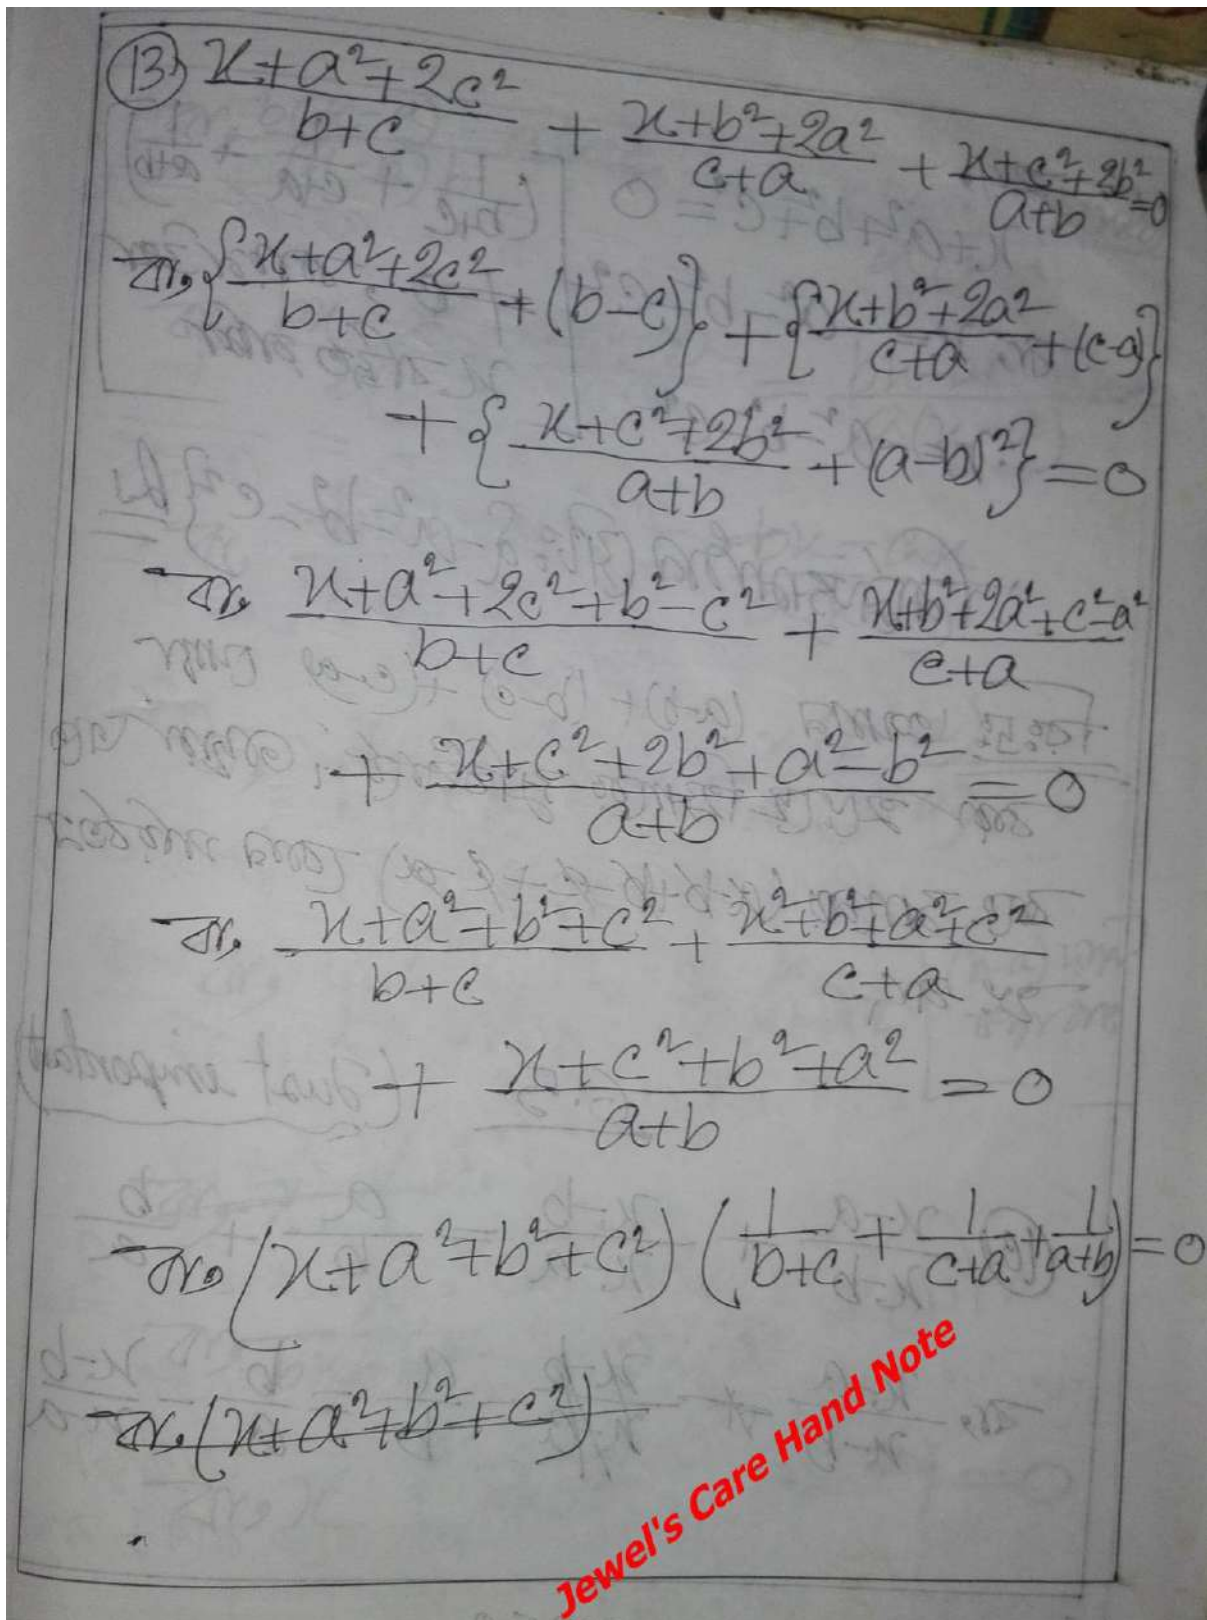 (13) (x+a²+2c²)/(b+c) + (x+b²+2a²)/(c+a) + (x+c²+2b²)/(a+b) = 0
বা, {(x+a²+2c²)/(b+c) + (b-c)} + {(x+b²+2a²)/(c+a) + (c-a)}
+ {(x+c²+2b²)/(a+b) + (a-b)²} = 0
বা, (x+a²+2c²+b²-c²)/(b+c) + (x+b²+2a²+c²-a²)/(c+a)
+ (x+c²+2b²+a²-b²)/(a+b) = 0
বা, (x+a²+b²+c²)/(b+c) + (x²+b²+a²+c²)/(c+a)
+ (x+c²+b²+a²)/(a+b) = 0
বা, (x+a²+b²+c²) (1/(b+c) + 1/(c+a) + 1/(a+b)) = 0
বা, (x+a²+b²+c²)
Jewel's Care Hand Note